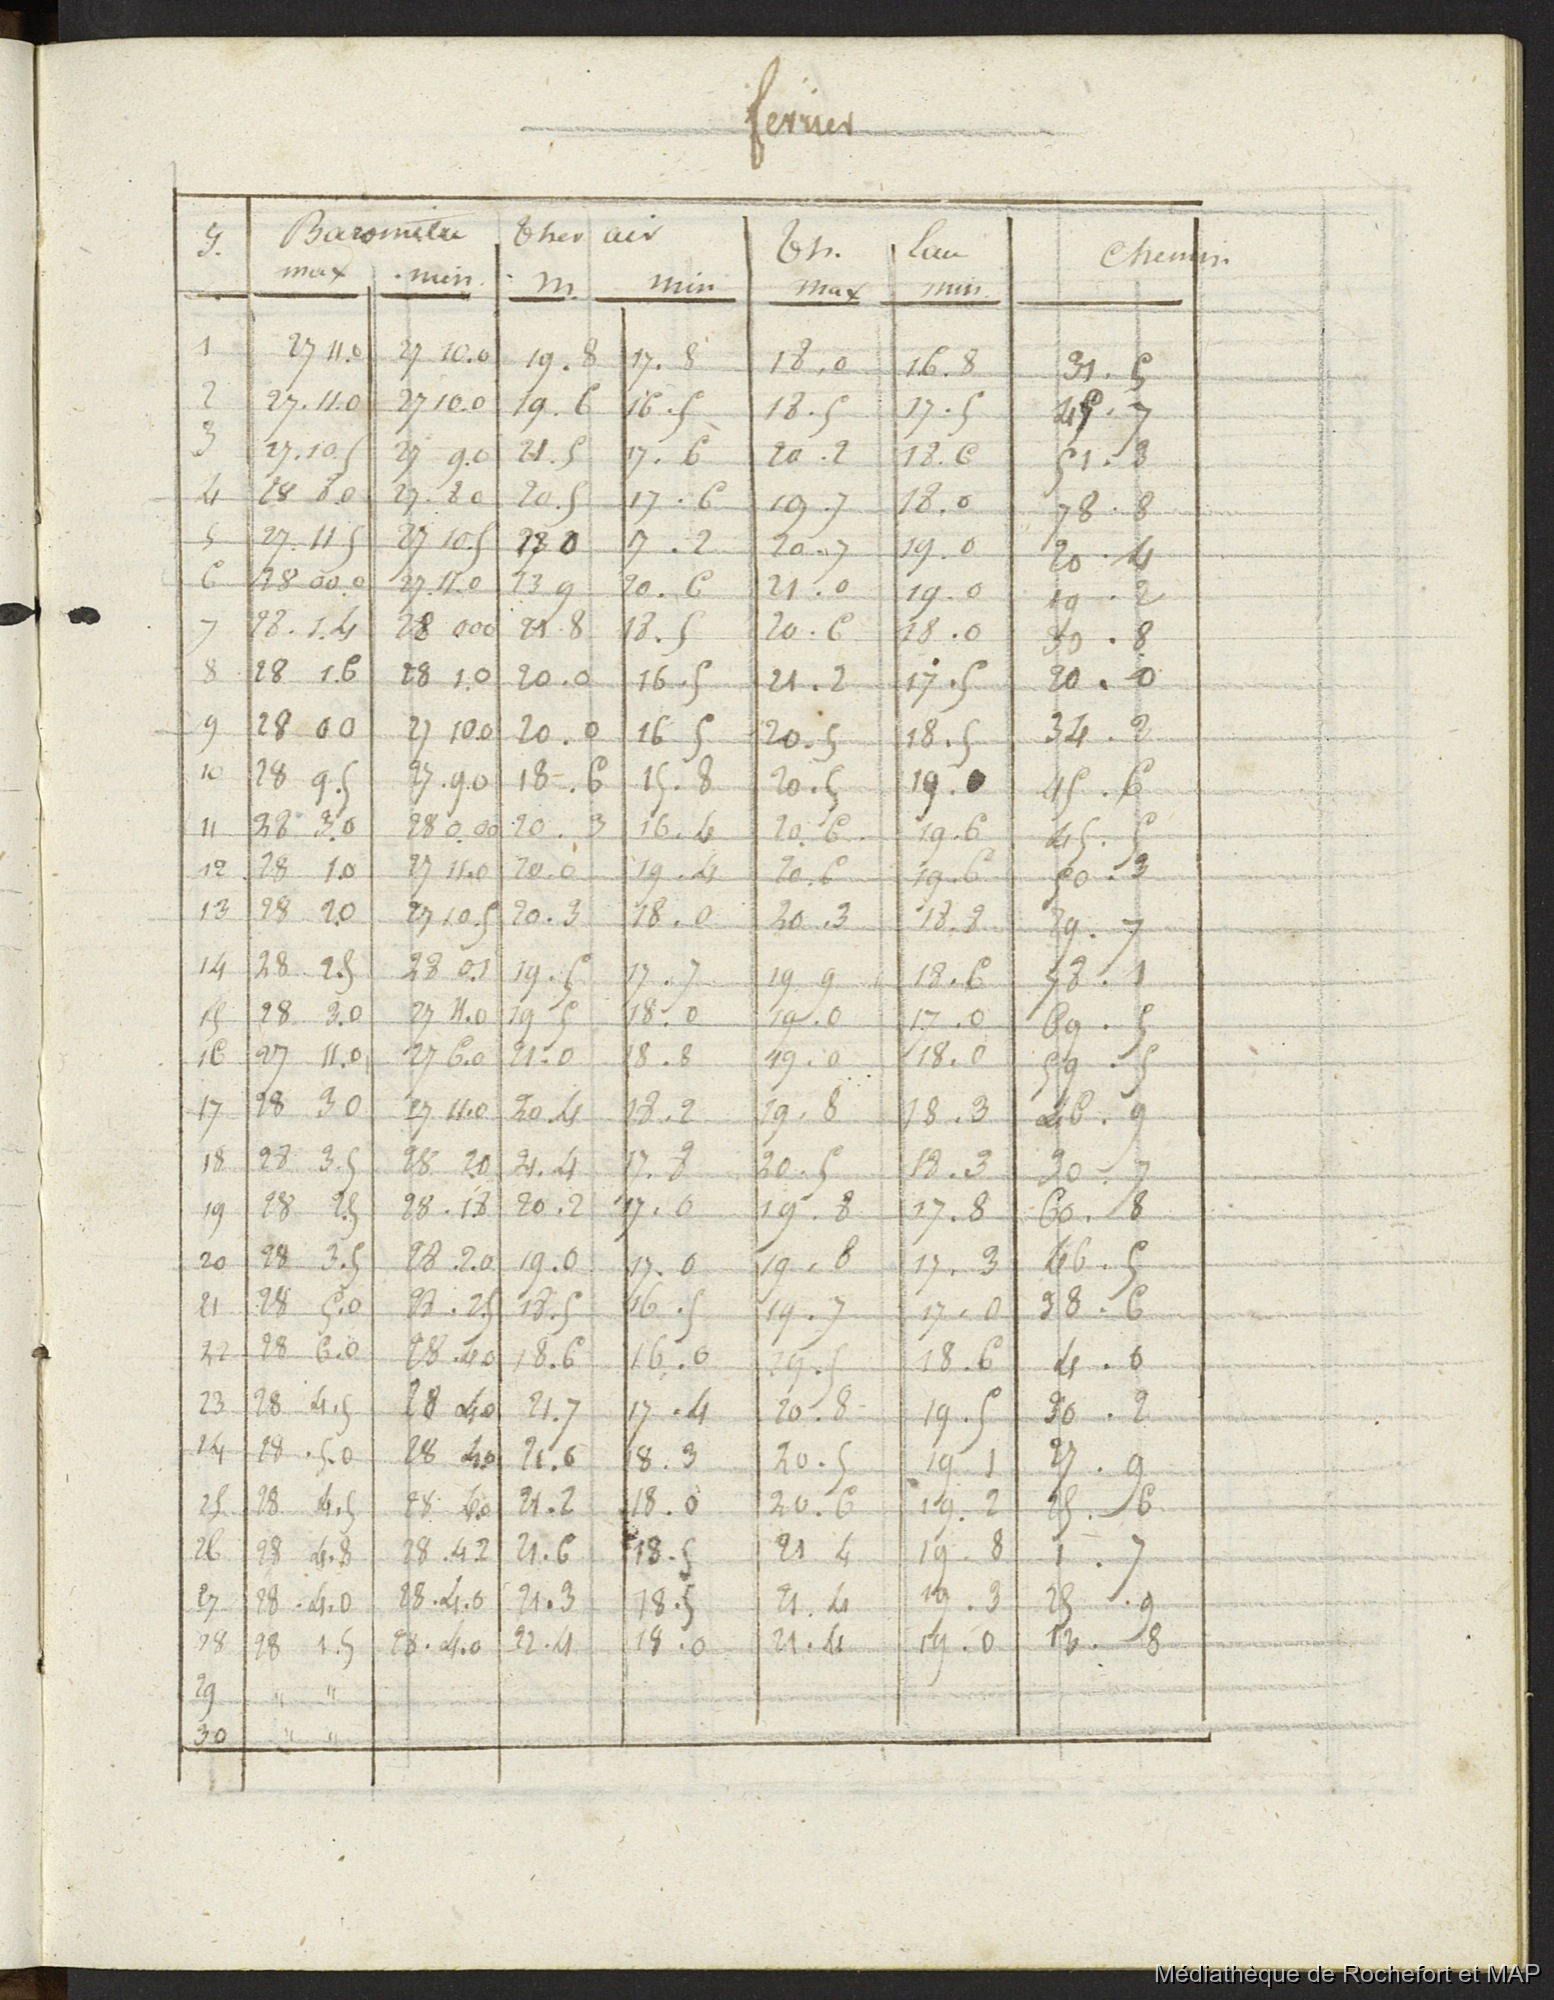 fevrier
J. Barometre Ther air Th. Leau Chemin
max min M. min max min
1 27 11.0 27 10.0 19.8 17.8 18.0 16.8 31.5
2 27.11.0 27 10.0 19.6 16.5 18.5 17.5 .7
3 27.10.5 27 9.0 21.5 17.6 20.2 18.6 51.3
4 28 8.0 27.8.0 20.5 17.6 19.7 18.0 78.8
5 27.11 5 27 10.5 0 17.2 20.7 19.0 20.4
6 28 00.0 27.11.0 23 9 20.6 21.0 19.0 19.2
7 28.1.4 28 000 21.8 18.5 20.6 18.0 39.8
8 28 1.6 28 1.0 20.0 16.5 21.2 17.5 20.0
9 28 00 27 10.0 20.0 16 5 20.5 18.5 34.2
10 28 9.5 27.9.0 18.6 15.8 20.5 19.0 45.6
11 28 3.0 28 0.00 20.3 16.4 20.6 19.6 45.5
12 28 1.0 27 11.0 20.0 19.4 20.6 19 6 50.3
13 28 2.0 27 10.5 20.3 18.0 20.3 18.8 29.7
14 28 2.5 28 0.1 19.5 17.7 19 9 18.6 58.1
15 28 3.0 27 11.0 19 5 18.0 19.0 17.0 69.5
16 27 11.0 27 6.0 21.0 18.8 19.0 18.0 59.5
17 28 30 27 11.0 20.4 18.2 19.8 18.3 46.9
18 28 3.5 28 20 21.4 17.8 20.5 18.3 30.7
19 28 2.5 28.18 20.2 17.0 19.8 17.8 60.8
20 28 3.5 28.2.0 19.0 17.0 19.8 17.3 46.5
21 28 5.0 28.25 18.5 16.5 19.7 17.0 38.6
22 28 6.0 28.40 18.6 16.0 19.5 18.6 4.0
23 28 4.5 28 40 21.7 17.4 20.8 19.5 30.2
24 28.5.0 28 4.0 21.6 18.3 20.5 19 1 27.9
25 28 4.5 28 4.0 21.2 18.0 20.6 19.2 25.6
26 28 4.8 28.42 21.6 18.5 21 4 19.8 1.7
27 28.4.0 28.4.0 21.3 18.5 21.4 19.3 25.9
28 28 1.5 28.4.0 22.4 18.0 21.4 19.0 12.8
29 " "
30 " "
Médiathèque de Rochefort et MAP